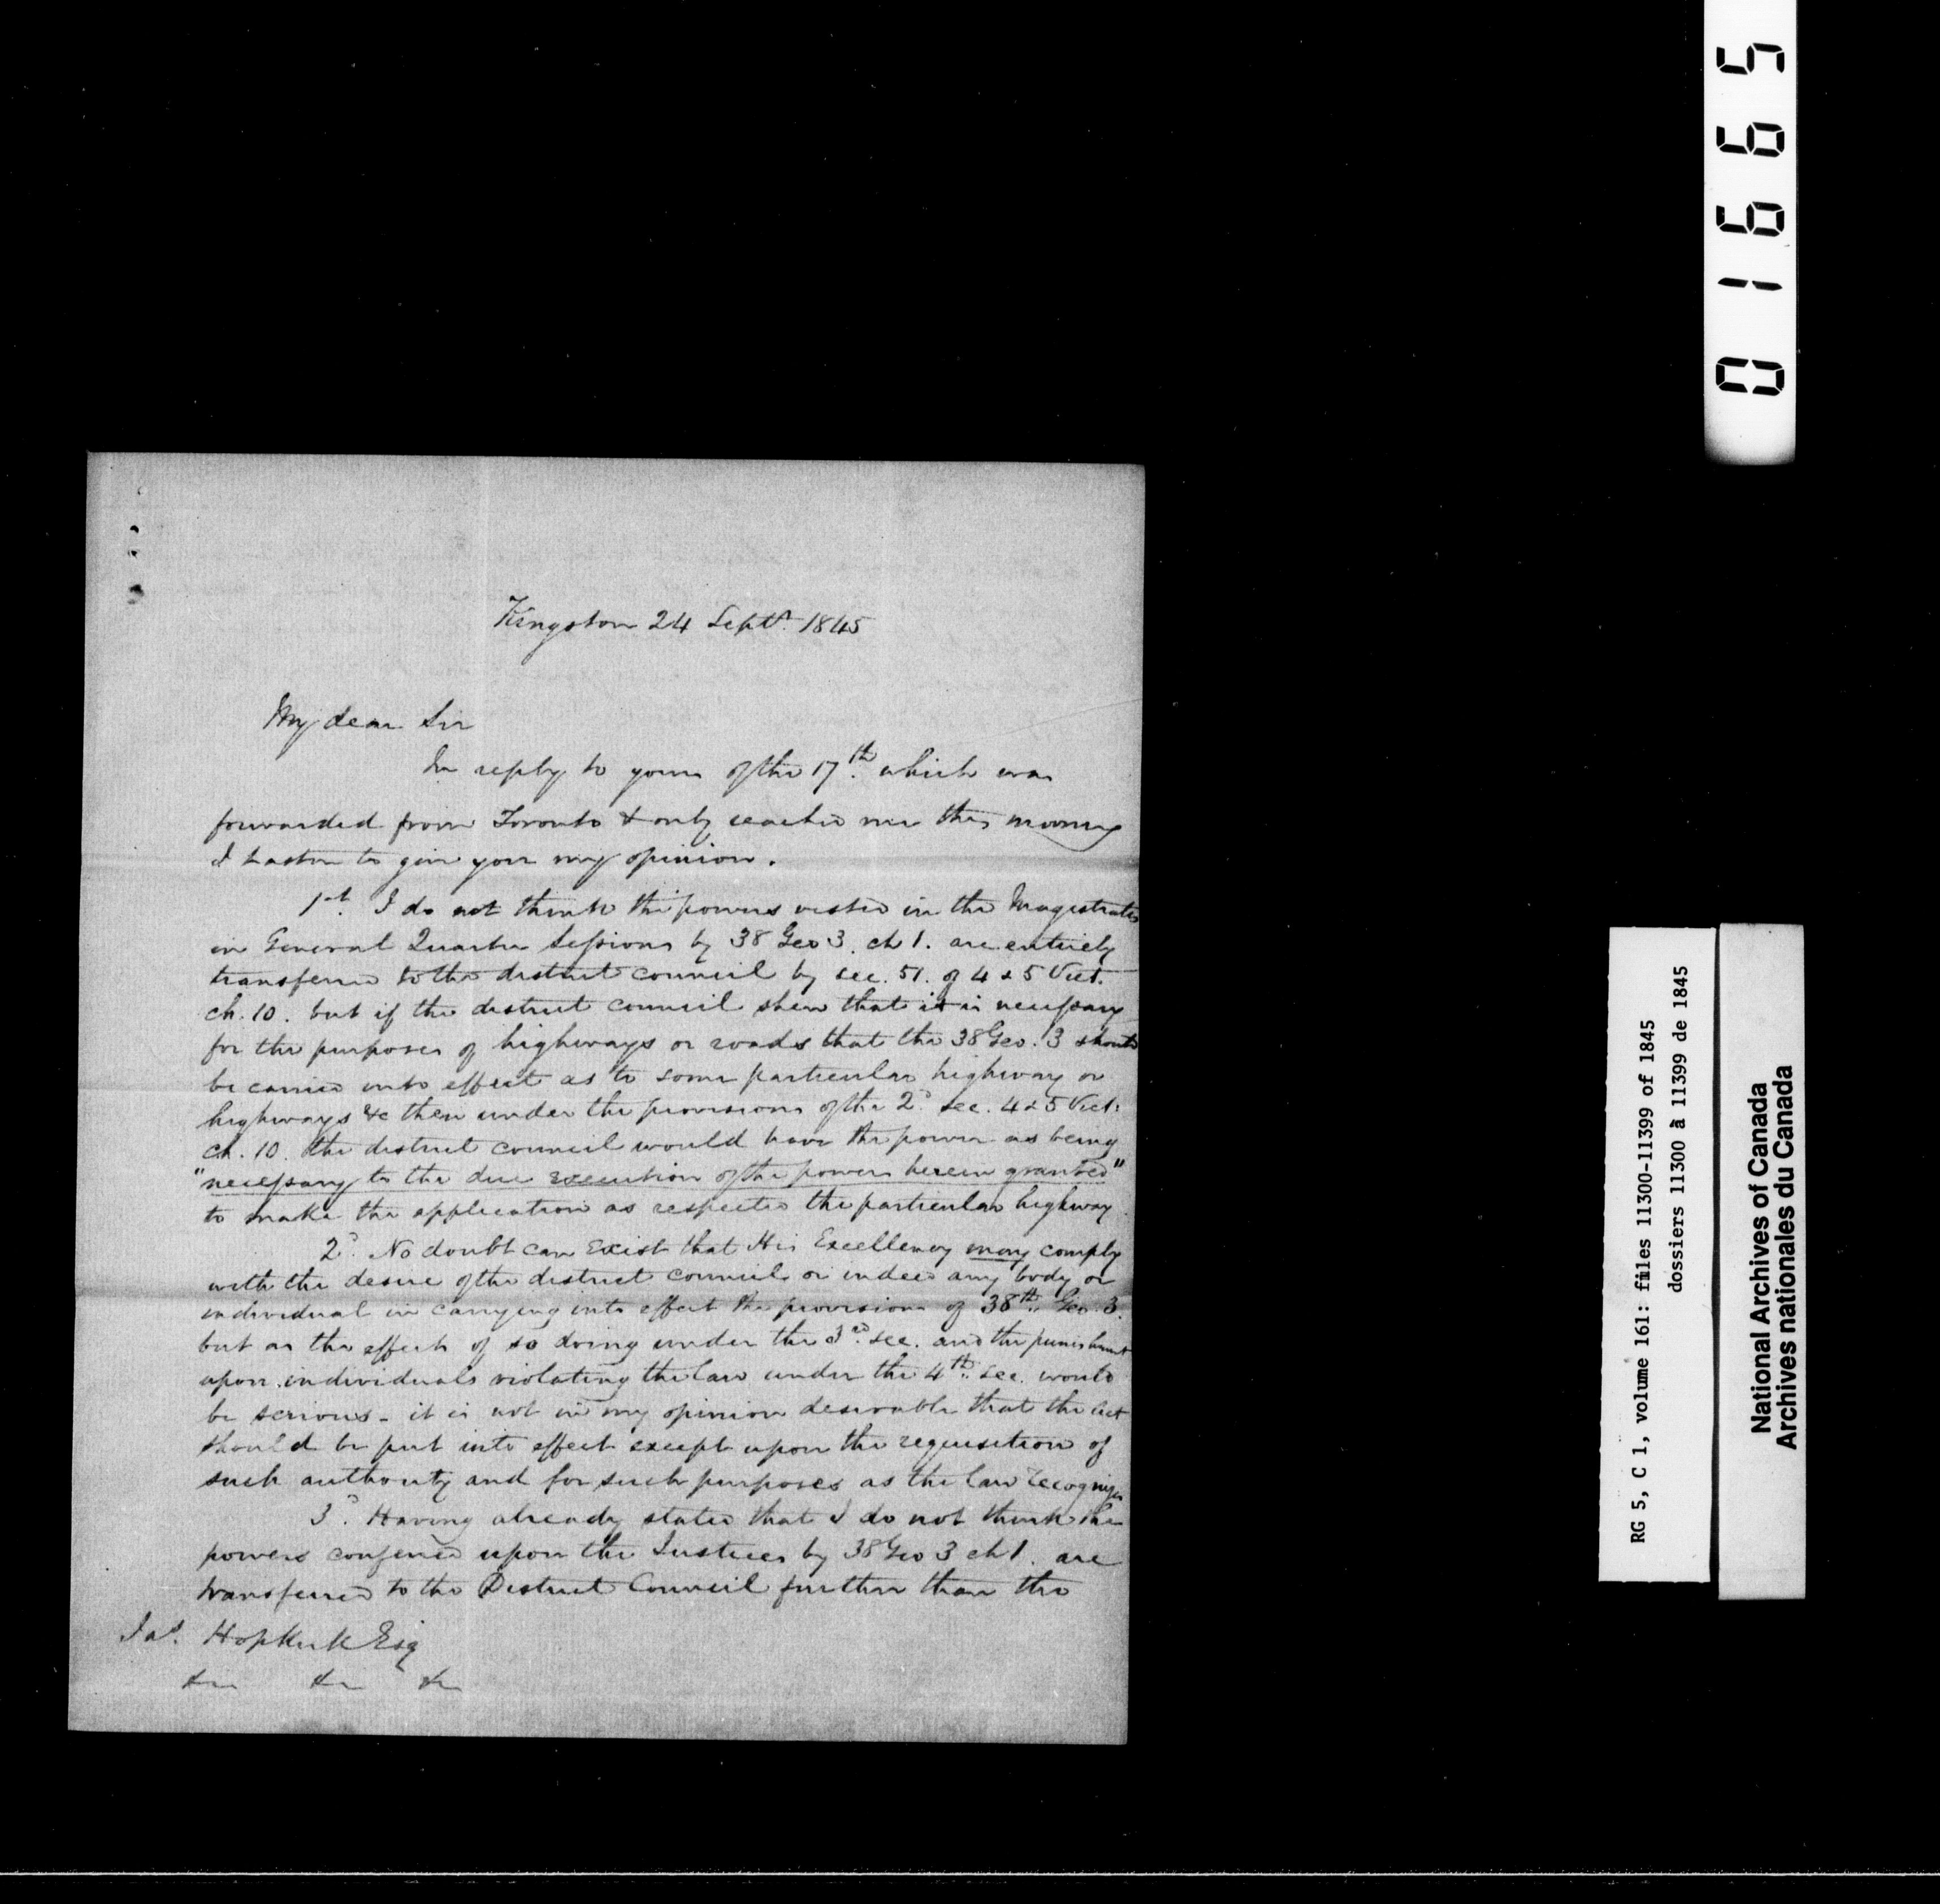 Kingston 24 Septr. 1845
My dear Sir
In reply to yours of the 17th. which was
forwarded from Toronto & only reached me this morning
I hasten to give you my opinion.
1st. I do not think the powers vested in the Magistrates
in General Quarter Sessions by 38 Geo 3. ch 1. are entirely
transferred to the district council by sec. 51. of 4 & 5 Vict.
ch. 10. but if the district council shew that it is necessary
for the purposes of highways or roads that the 38 Geo. 3 should
be carried into effect as to some particular highway or
highways &c then under the provisions of the 2d sec. 4 & 5 Vict:
ch. 10. the district council would have the power as being
"necessary to the due execution of the powers herein granted"
to make the application as respects the particular highway
2d. No doubt can exist that His Excellency may comply
with the desire of the district council or indeed any body or
individual in carrying into effect the provisions of 38th. Geo. 3.
but as the effects of so doing under the 3rd. sec. and the punishment
upon individuals violating the law under the 4th. sec. would
be serious - it is not in my opinion desirable that the act
should be put into effect except upon the requisition of
such authority and for such purposes as the law recognizes
3d. Having already stated that I do not think the
powers conferred upon the Justices by 38 Geo 3 ch 1. are
transferred to the District Council further than the
Jas. Hopkirk Esq
&c &c &c
01665
RG 5, C 1, volume 161: files 11300-11399 of 1845
dossiers 11300 à 11399 de 1845
National Archives of Canada
Archives nationales du Canada